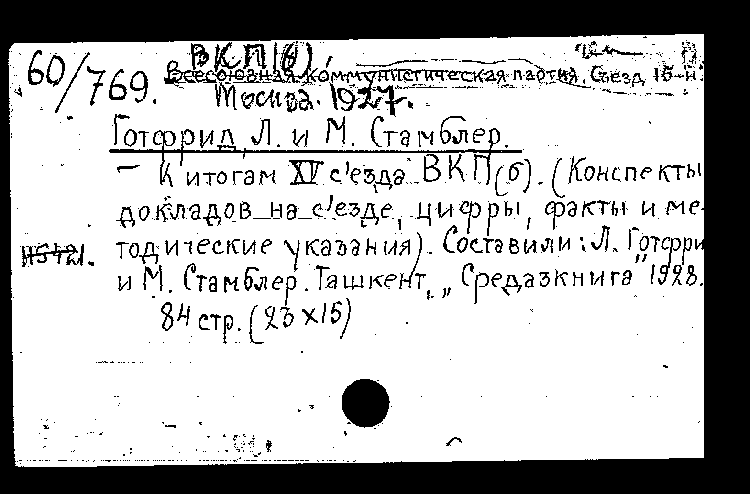 60/769.
ВКП(б),
Всесоюзная коммунистическая партия. Съезд 15-й.
Москва. 1927.
Готфрид, Л. и М. Стамблер.
— К итогам XV с'езда ВКП(б). (Конспекты
докладов на с'езде, цифры, факты и ме-
тодические указания). Составили: Л. Готфри
и М. Стамблер. Ташкент, „Средазкнига" 1928.
84 стр. (23×15)